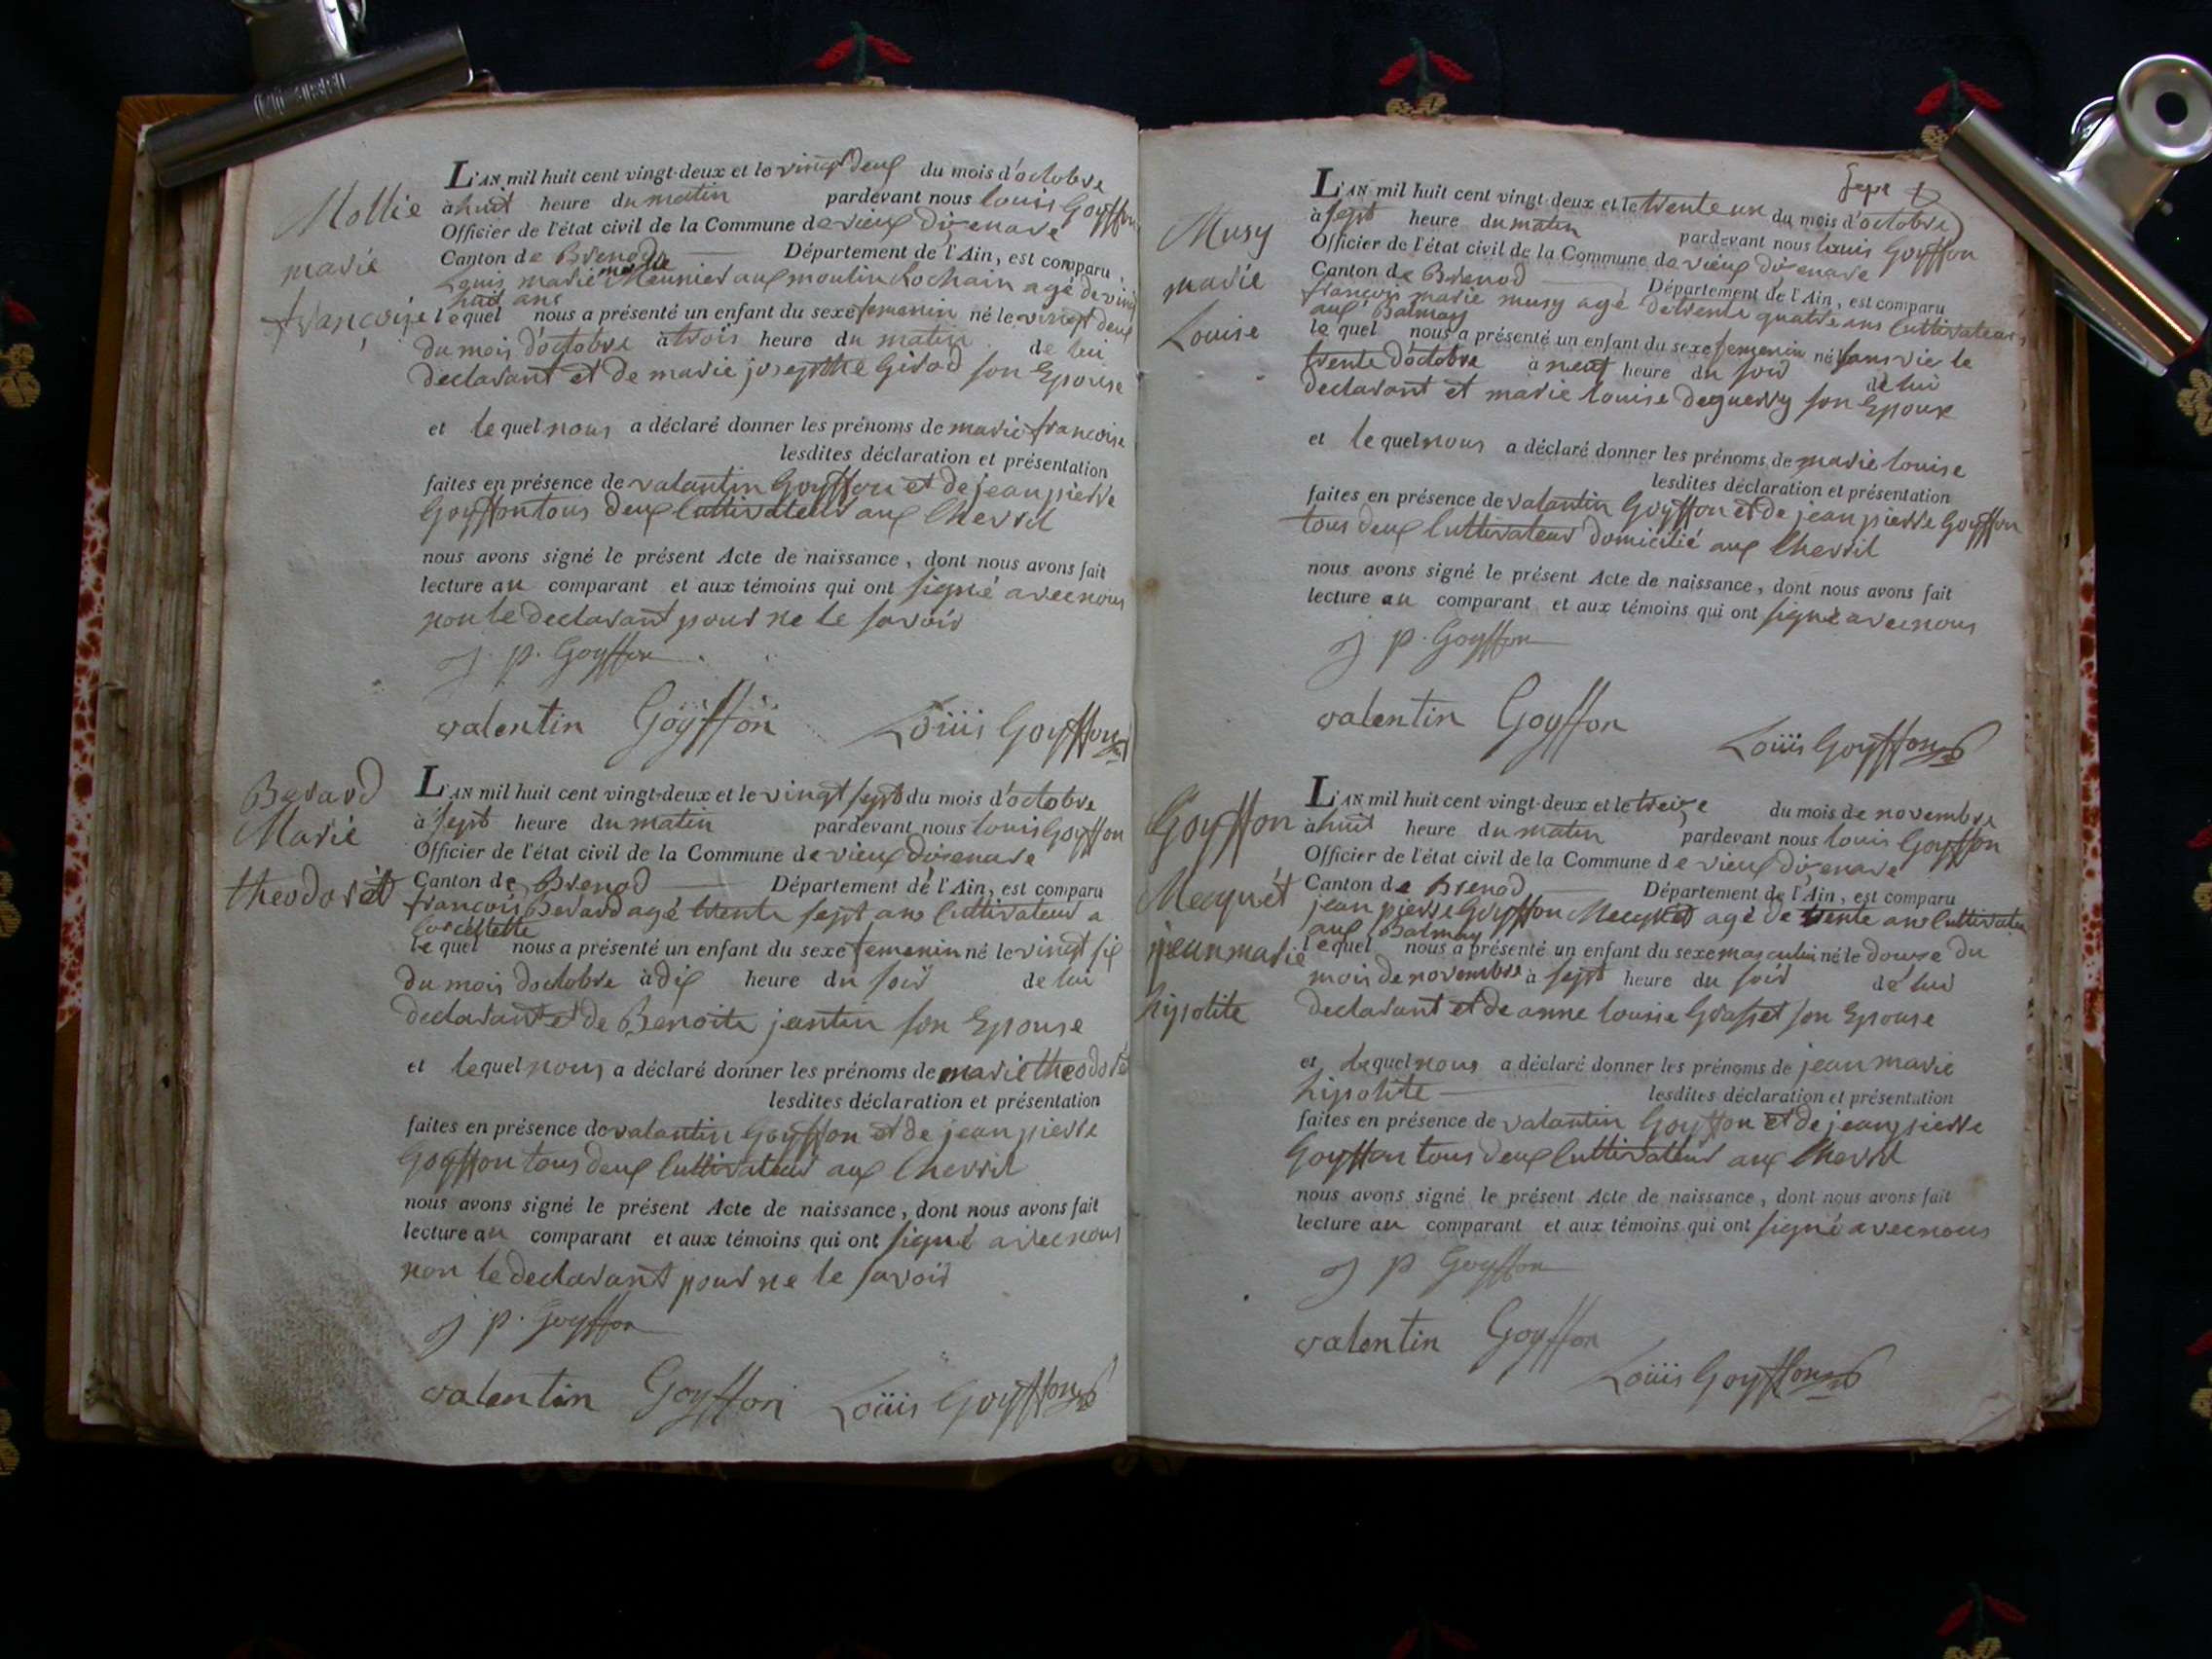 Mollie
marie
françoise
L'AN mil huit cent vingt-deux et le vingt deux du mois d'octobre
à huit heure du matin pardevant nous louis Goyffon
Officier de l'état civil de la Commune de vieux dizenave
Canton de Brenod Département de l'Ain, est comparu
Louis marie mollie Meunier aux moulin Rochain agé de vingt
huit ans
lequel nous a présenté un enfant du sexe femenin né le vingt deux
du mois d'octobre à trois heure du matin de lui
declarant et de marie josepthe Girod son Epouse
et lequel nous a déclaré donner les prénoms de marie francoise
lesdites déclaration et présentation
faites en présence de valantin Goyffon et de jean pierre
Goyffon tous deux Cultivateur aux Chevril
nous avons signé le présent Acte de naissance, dont nous avons fait
lecture au comparant et aux témoins qui ont signé avec nous
non le declarant pour ne le savoir
j. p. Goyffon
valentin Goÿffon Loüis Goyffon
Berard
Marie
theodorit
L'AN mil huit cent vingt-deux et le vingt sept du mois d'octobre
à sept heure du matin pardevant nous louis Goyffon
Officier de l'état civil de la Commune de vieux dizenave
Canton de Brenod Département de l'Ain, est comparu
françois Berard agé trente sept ans Cultivateur a
Corcelette
le quel nous a présenté un enfant du sexe femenin né le vingt six
du mois doctobre à dix heure du soir de lui
declarant et de Benoite jantin son Epouse
et lequel nous a déclaré donner les prénoms de marie theodorit
lesdites déclaration et présentation
faites en présence de valantin Goyffon et de jean pierre
Goyffon tous deux Cultivateur aux Chevril
nous avons signé le présent Acte de naissance, dont nous avons fait
lecture au comparant et aux témoins qui ont signé avec nous
non le declarant pour ne le savoir
j. p. Goyffon
valentin Goyffon Loüis Goyffon
Musy
marie
Louise
L'AN mil huit cent vingt-deux et le trente un du mois d'octobre
à sept heure du matin pardevant nous louis Goyffon
Officier de l'état civil de la Commune de vieux dizenave
Canton de Brenod Département de l'Ain, est comparu
françois marie musy agé de trente quatre ans Cultivateur
aux Balmay
le quel nous a présenté un enfant du sexe femenin né sans vie le
trente d'octobre à neuf heure du soir de lui
declarant et marie louise deguerry son Epouse
et lequel nous a déclaré donner les prénoms de marie louise
lesdites déclaration et présentation
faites en présence de valantin Goyffon et de jean pierre Goyffon
tous deux Cultivateur domicilié aux Chevril
nous avons signé le présent Acte de naissance, dont nous avons fait
lecture au comparant et aux témoins qui ont signé avec nous
j p. Goyffon
valentin Goyffon
Loüis Goyffon
Goyffon
Mecquet
jean marie
hipolite
L'AN mil huit cent vingt-deux et le treize du mois de novembre
à huit heure du matin pardevant nous louis Goyffon
Officier de l'état civil de la Commune de vieux dizenave
Canton de Brenod Département de l'Ain, est comparu
jean pierre Goyffon Mecquet agé de trente ans Cultivateu
aux Balmay
lequel nous a présenté un enfant du sexe masculin né le douze du
mois de novembre à sept heure du soir de lui
declarant et de anne louise Grasset son Epouse
et lequel nous a déclaré donner les prénoms de jean marie
hipolite lesdites déclaration et présentation
faites en présence de valantin Goyffon et de jean pierre
Goyffon tous deux Cultivateur aux Chevril
nous avons signé le présent Acte de naissance, dont nous avons fait
lecture au comparant et aux témoins qui ont signé avec nous
j p Goyffon
valentin Goyffon
Loüis Goyffon